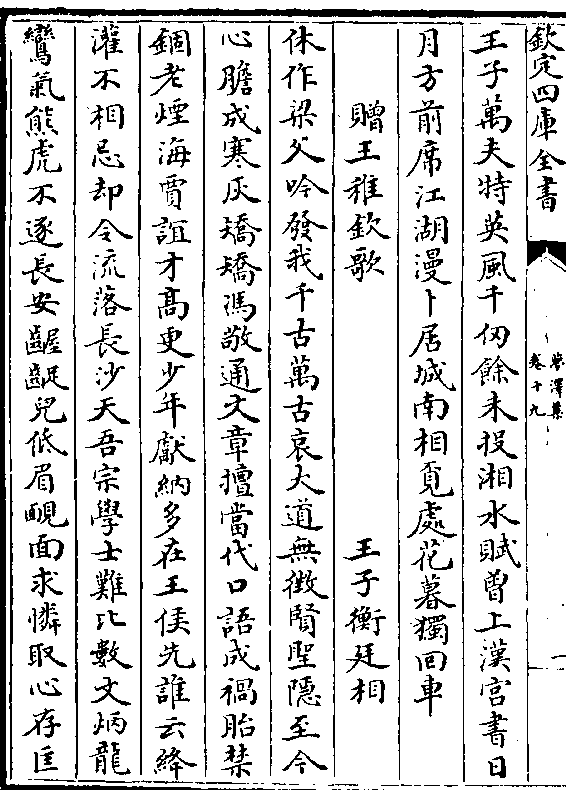 欽定四庫全書
夢澤集
卷十九
王子萬夫特英風千仞餘未投湘水賦曾上漢宮書日
月方前席江湖漫卜居城南相覓處花暮獨回車
贈王稚欽歌 王子衡廷相
休作梁父吟發我千古萬古哀大道無徴賢聖隱至今
心膽成寒灰矯矯馮敬通文章擅當代口語成禍胎禁
錮老煙海賈誼才髙更少年獻納多在王侯先誰云絳
灌不相忌却令流落長沙天吾宗學士難比數文炳龍
鸞氣熊虎不逐長安齷齪兒低眉靦面求憐取心存匡